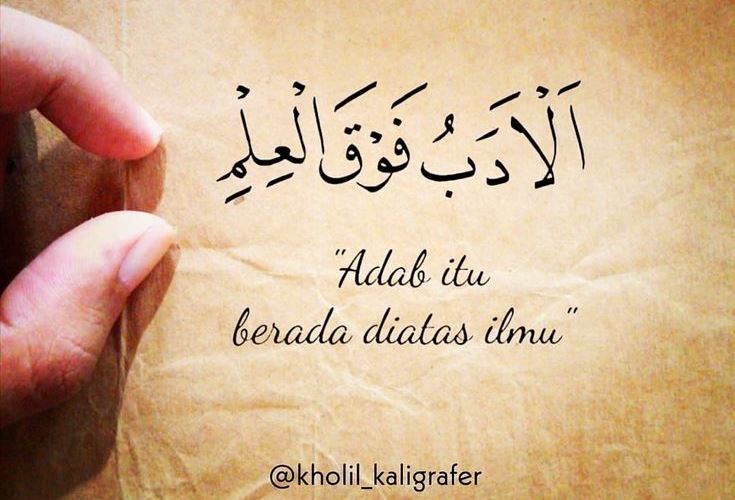 اَلْاَدَبُ فَوْقَ الْعِلْمِ
"Adab itu
berada diatas ilmu"
@kholil_kaligrafer